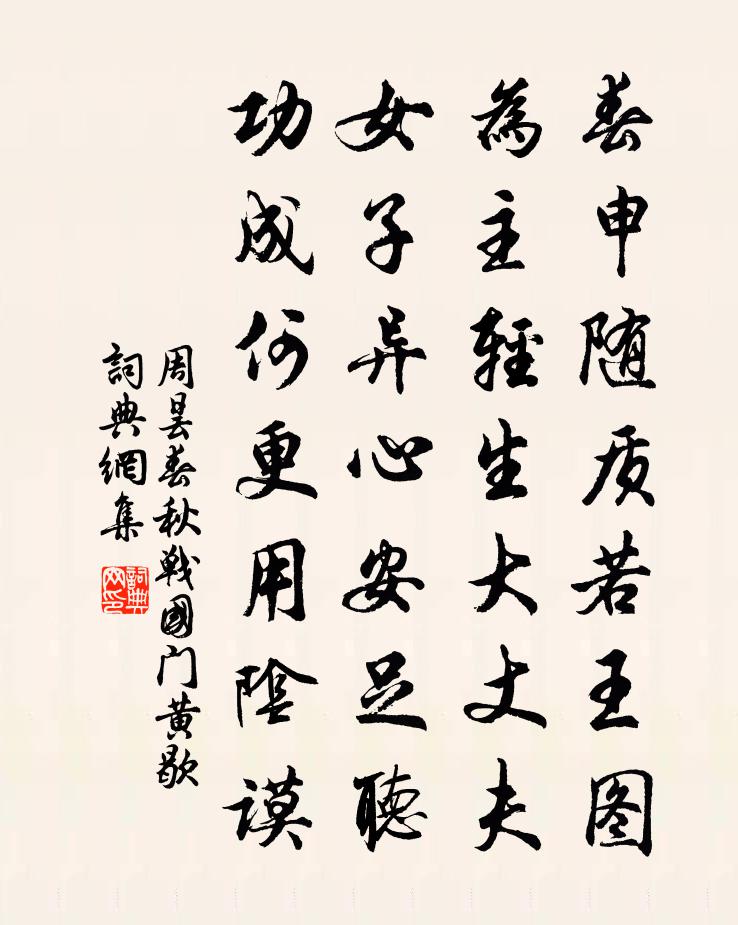 春申随质若王图
為主輕生大丈夫
女子异心安足聽
功成何更用陰謨
周昙春秋戰國门黄歇
詞典網集
詞典网印